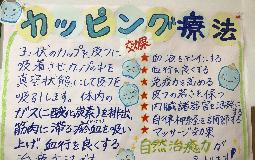 カッピング療法
3、伏のカップを皮フに
吸着させカップの中を
真空状態にして皮フを
吸引します。体内の
ガスに酸(炭素)を排出
筋肉に滞る瘀血を吸い
上げ血行を良くする
効果
★血液をキレイにする
★血行を良くする
★免疫力を高める
★皮フの若さを保つ
★内臓諸器官を活発に
★自律神経を調節する
★マッサージ効果
自然治癒力が